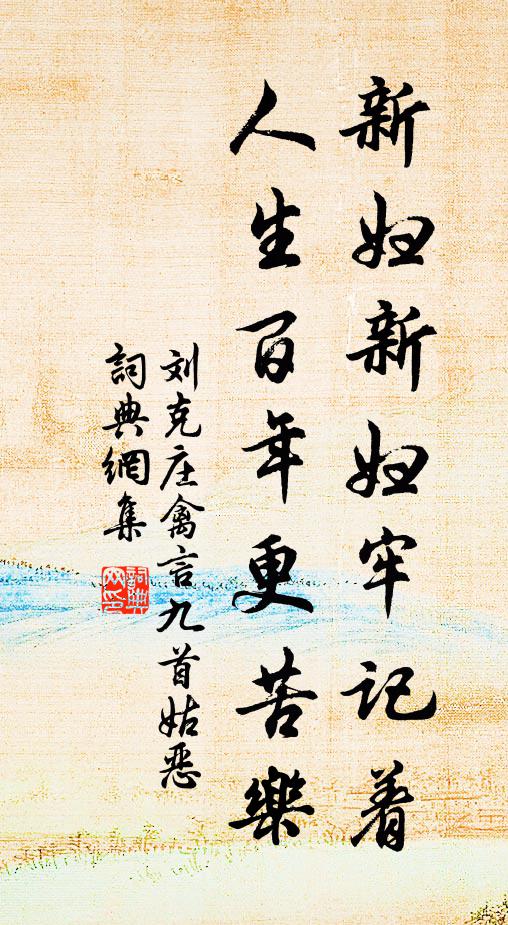 新妇新妇牢记着
人生百年更苦樂
刘克庄禽言九首姑恶
詞典網集